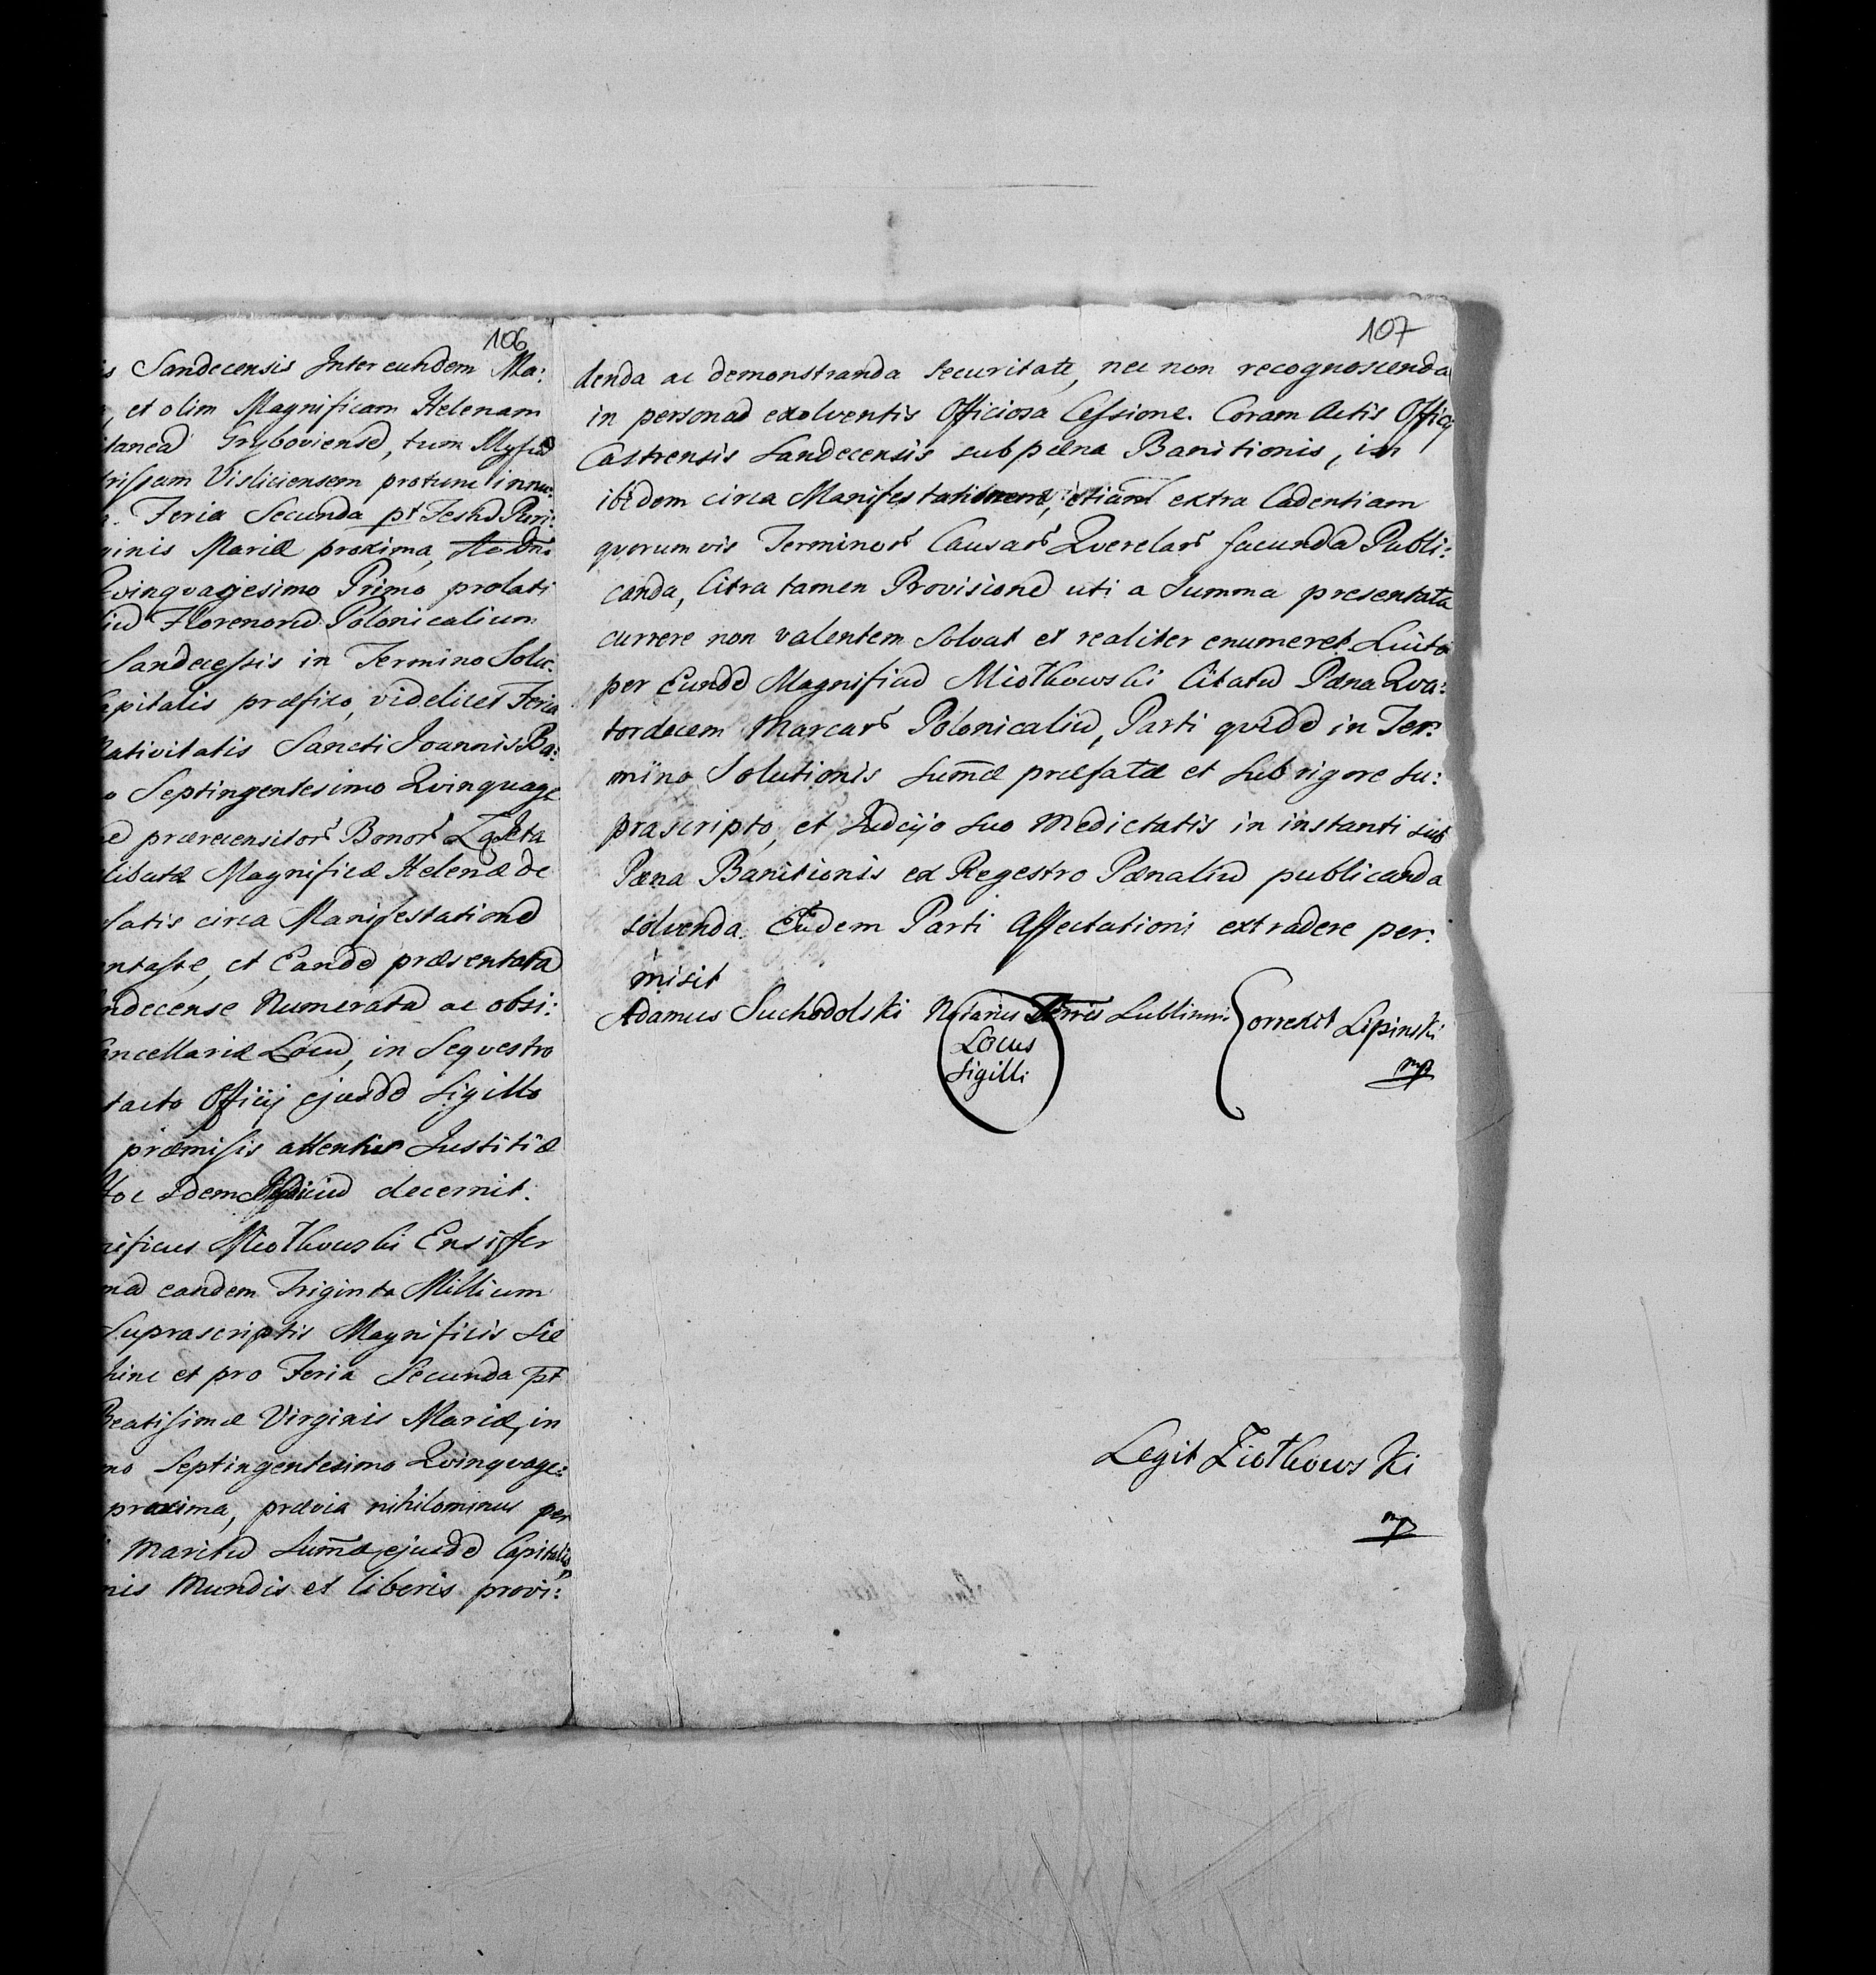 106
Sandecensis Inter eundem Ma:
et olim Magnificam Helenam
Gryboviensē, tum
Visliciensem protunc
Feria Secunda pt Festū Puri:
ginis Mariæ proxima,
Qvinqvagesimo Primo prolati
Florenorū Polonicalium
Sandecensis in Termino Solu:
apitalis præfixo, videlicet Feria
Nativitatis Sancti Joannis Ba:
Septingentesimo Qvinquage
præreċensitor Bonor
Magnificæ Helenæ de
latis circa Manifestationē
entasse, et Eandē præsentatā
ndecense Numeratā ac obsi:
ancellariæ Locū, in Seqvestro
tacto Officij ejusdē Sigillo
præmissis attentis Justitiæ
Hoc Idem decernit.
nificus Miotkowski Ensiffer
eandem Triginta Millium
Suprascriptis Magnificis
hinc et pro Feria Secunda pt
Beatissimæ Virginis Mariæ, in
mo Septingentesimo Qvinqvage:
proxima, prævia nihilominus per
Maritū Sum̄æ ejusdē Capitalis
nis Mundis et liberis provi:
107
denda ac demonstranda securitate, nec non recognoscenda
in personā exolventis Officiosa Cessione. Coram Actis Officij
Castrensis Sandecensis sub pæna Banitionis, in
ibidem circa Manifestationem, etiam extra Cadentiam
qvorumvis Terminor Causar Qverelar facunda Publi:
canda, Citra tamen Provisionē uti a Summa presentata
currere non valentem Solvat et realiter enumeret. Luito
per Eundē Magnificū Miotkowski Citatū Pæna Qva:
tordecem Marcar Polonicaliū, Parti qvidē in Ter:
mino Solutionis Sum̄æ præfatæ et sub rigore su:
prascripto, et Judicijo suo Medietatis in instanti sub
Pæna Banitionis ex Regestro Pænaliū publicanda
solvenda. Eidem Parti Affectationi extradere per:
misit
Adamus Suchodolski Notarius Terris Lublinen
Correxit Lipinski
mp
Locus
Sigilli
Legit Ziotkowski
mp